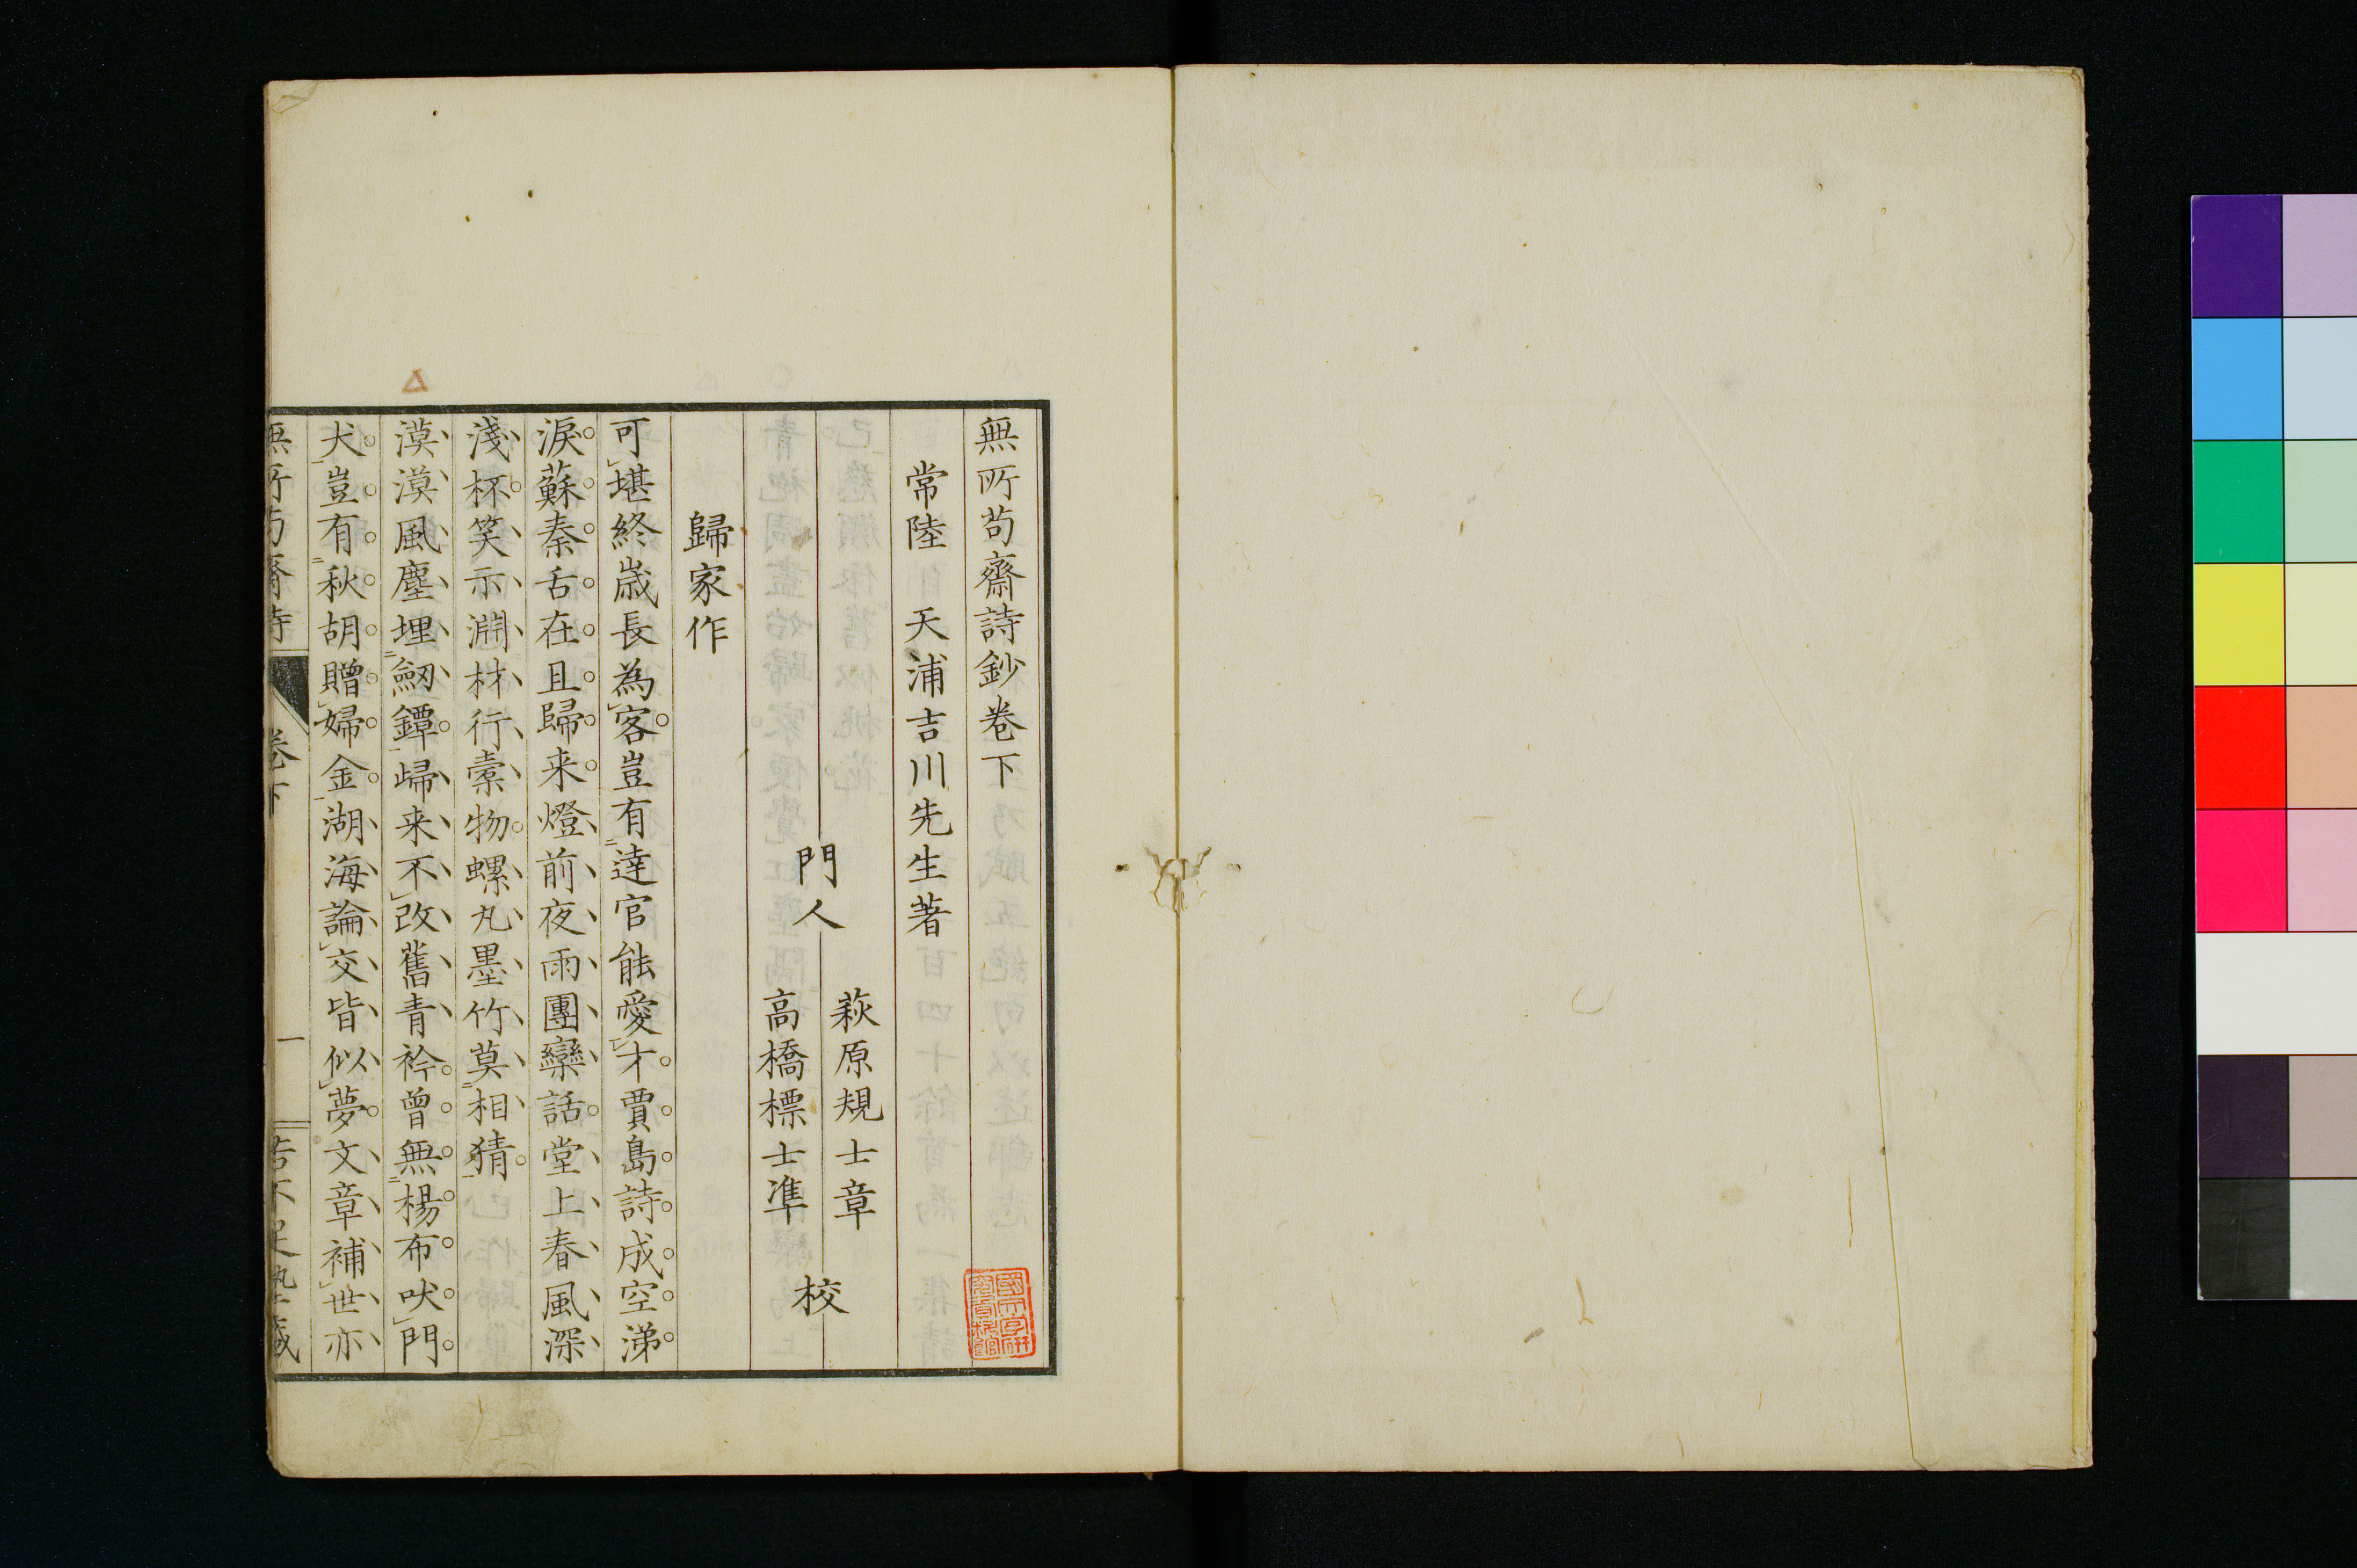 無所苟齋詩鈔卷下
常陸　天浦吉川先生著
門人　萩原規士章
高橋標士準　校
歸家作
可堪終歳長為客豈有達官能愛才賈島詩成空涕
淚蘇秦舌在且歸来燈前夜雨團欒話堂上春風深
淺杯笑示淵材行橐物螺丸墨竹莫相猜
漠漠風塵埋劔鐔歸来不改舊青衿曾無楊布吠門
犬豈有秋胡贈婦金湖海論交皆似夢文章補世亦
卷下
一